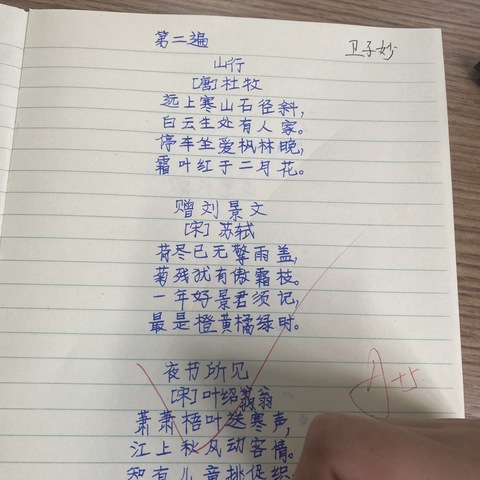 第二遍
卫子妙
山行
[唐]杜牧
远上寒山石径斜,
白云生处有人家。
停车坐爱枫林晚,
霜叶红于二月花。
赠刘景文
[宋]苏轼
荷尽已无擎雨盖,
菊残犹有傲霜枝。
一年好景君须记,
最是橙黄橘绿时。
夜书所见
[宋]叶绍翁
萧萧梧叶送寒声,
江上秋风动客情。
知有儿童挑促织